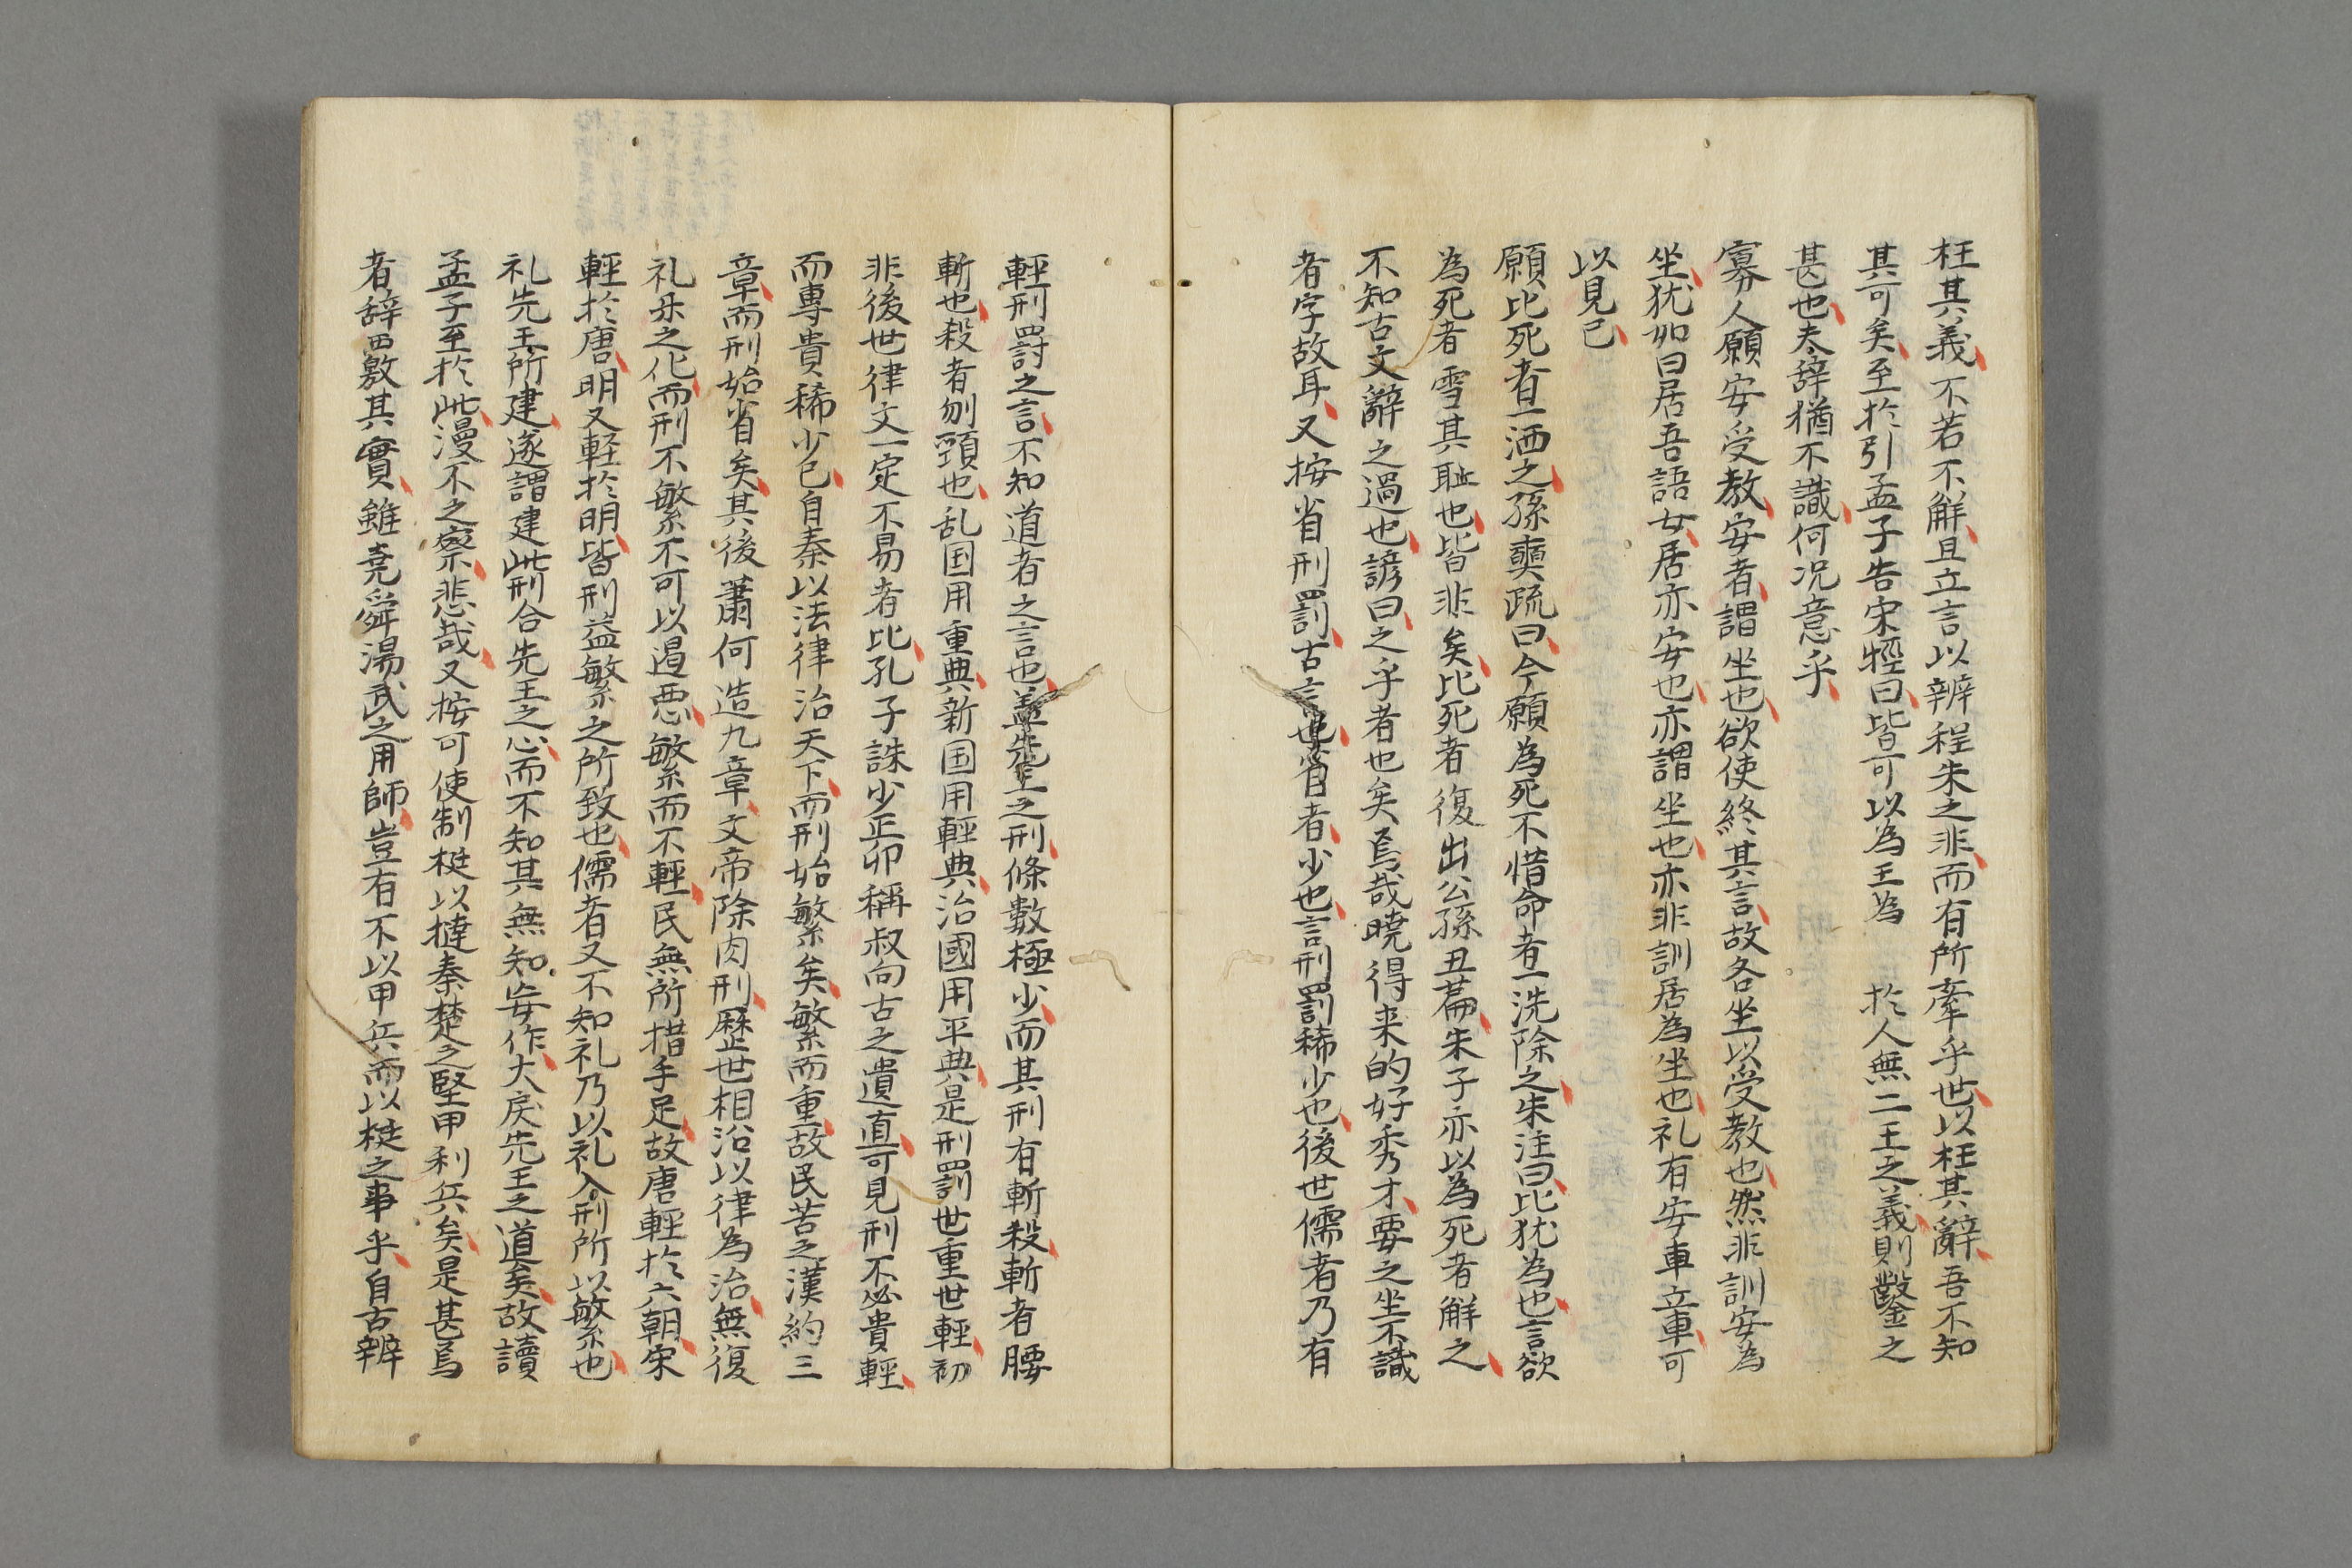 枉其義不若不解且立言以辨程朱之非而有所牽乎世以枉其辭吾不知
其可矣至於引孟子告宋牼曰皆可以為王為　於人無二王之義則鑿之
甚也夫辞猶不識何况意乎
寡人願安受教安者謂坐也欲使終其言故各坐以受教也然非訓安為
坐犹如曰居吾語女居亦安也亦謂坐也亦非訓居為坐也礼有安車立車可
以見已
願比死者一洒之孫奭疏曰今願為死不惜命者一洗除之朱注曰比犹為也言欲
為死者雪其耻也皆非矣比死者復出公孫丑篇朱子亦以為死者解之
不知古文辭之過也諺曰之乎者也矣焉哉曉得来的好秀才要之坐不識
者字故耳又按省刑罰古言也省者少也言刑罰稀少也後世儒者乃有
輕刑罰之言不知道者之言也盖先王之刑條數極少而其刑有斬殺斬者腰
斬也殺者刎頸也乱国用重典新国用輕典治國用平典是刑罰世重世輕初
非後世律文一定不易者比孔子誅少正卯稱叔向古之遺直可見刑不必貴輕
而專貴稀少已自秦以法律治天下而刑始繁矣繁而重故民苦之漢約三
章而刑始省矣其後蕭何造九章文帝除肉刑歷世相沿以律為治無復
礼楽之化而刑不繁不可以遏悪繁而不輕民無所措手足故唐輕於六朝宋
輕於唐明又軽於明皆刑益繁之所致也儒者又不知礼乃以礼入刑所以繁也
礼先王所建遂謂建此刑合先王之心而不知其無知妄作大戻先王之道矣故讀
孟子至於此漫不之察悲哉又按可使制梃以撻秦楚之堅甲利兵矣是甚焉
者辞而覈其實雖堯舜湯武之用師豈有不以甲兵而以梃之事乎自古辨